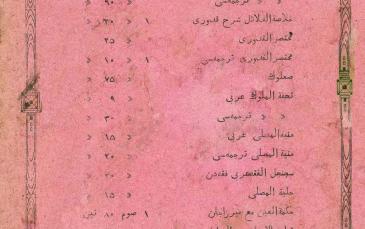 » » ترجمه‌سی » ٩٠ »
خلاصة الدلائل شرح قدوری ١ » ٣٠ »
مختصر القدوری ٢٥
مختصر القدوری ترجمه‌سی ١ » ١٠ »
صعلوك » ٧٥ »
تحفة الملوك عربی » ٩ »
» » ترجمه‌سی » ٣٠ »
منية المصلی عربی » ١٥ »
منية المصلی ترجمه‌سی » ٢٠ »
فقهدن » ٢٠ »
حلبة المصلی » ١٥ »
حكمة العين مع ١ صوم ٨٠ تين